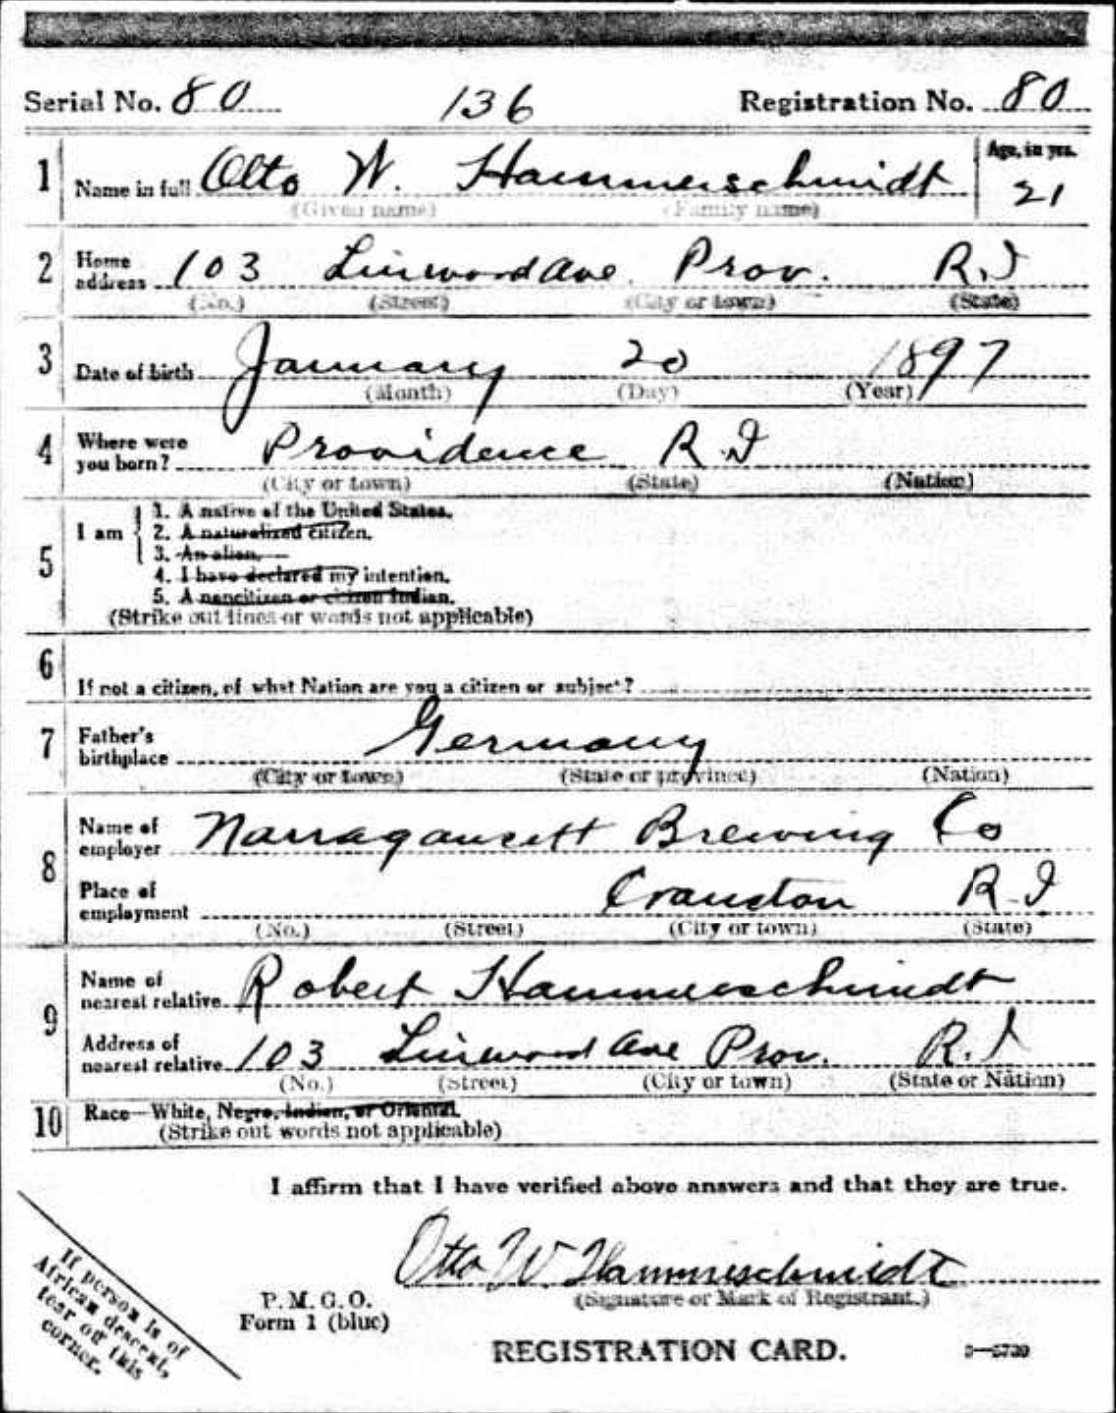 Serial No. 80 136 Registration No. 80
1 Name in full Otto W. Hammerschmidt Age, in yrs. 21
(Given name) (Family name)
2 Home address 103 Linwood Ave. Prov. R.I
(No.) (Street) (City or town) (State)
3 Date of birth January 20 1897
(Month) (Day) (Year)
4 Where were you born? Providence R.I
(City or town) (State) (Nation)
5 I am
1. A native of the United States.
2. A naturalized citizen.
3. An alien.
4. I have declared my intention.
5. A noncitizen or citizen Indian.
(Strike out lines or words not applicable)
6 If not a citizen, of what Nation are you a citizen or subject?
7 Father's birthplace Germany
(City or town) (State or province) (Nation)
8 Name of employer Narragansett Brewing Co
Place of employment Cranston R.I
(No.) (Street) (City or town) (State)
9 Name of nearest relative Robert Hammerschmidt
Address of nearest relative 103 Linwood Ave Prov. R.I
(No.) (Street) (City or town) (State or Nation)
10 Race—White, Negro, Indian, or Oriental.
(Strike out words not applicable)
I affirm that I have verified above answers and that they are true.
Otto W. Hammerschmidt
(Signature or Mark of Registrant.)
P. M. G. O.
Form 1 (blue)
REGISTRATION CARD.
If person is of
African descent,
tear off this
corner.